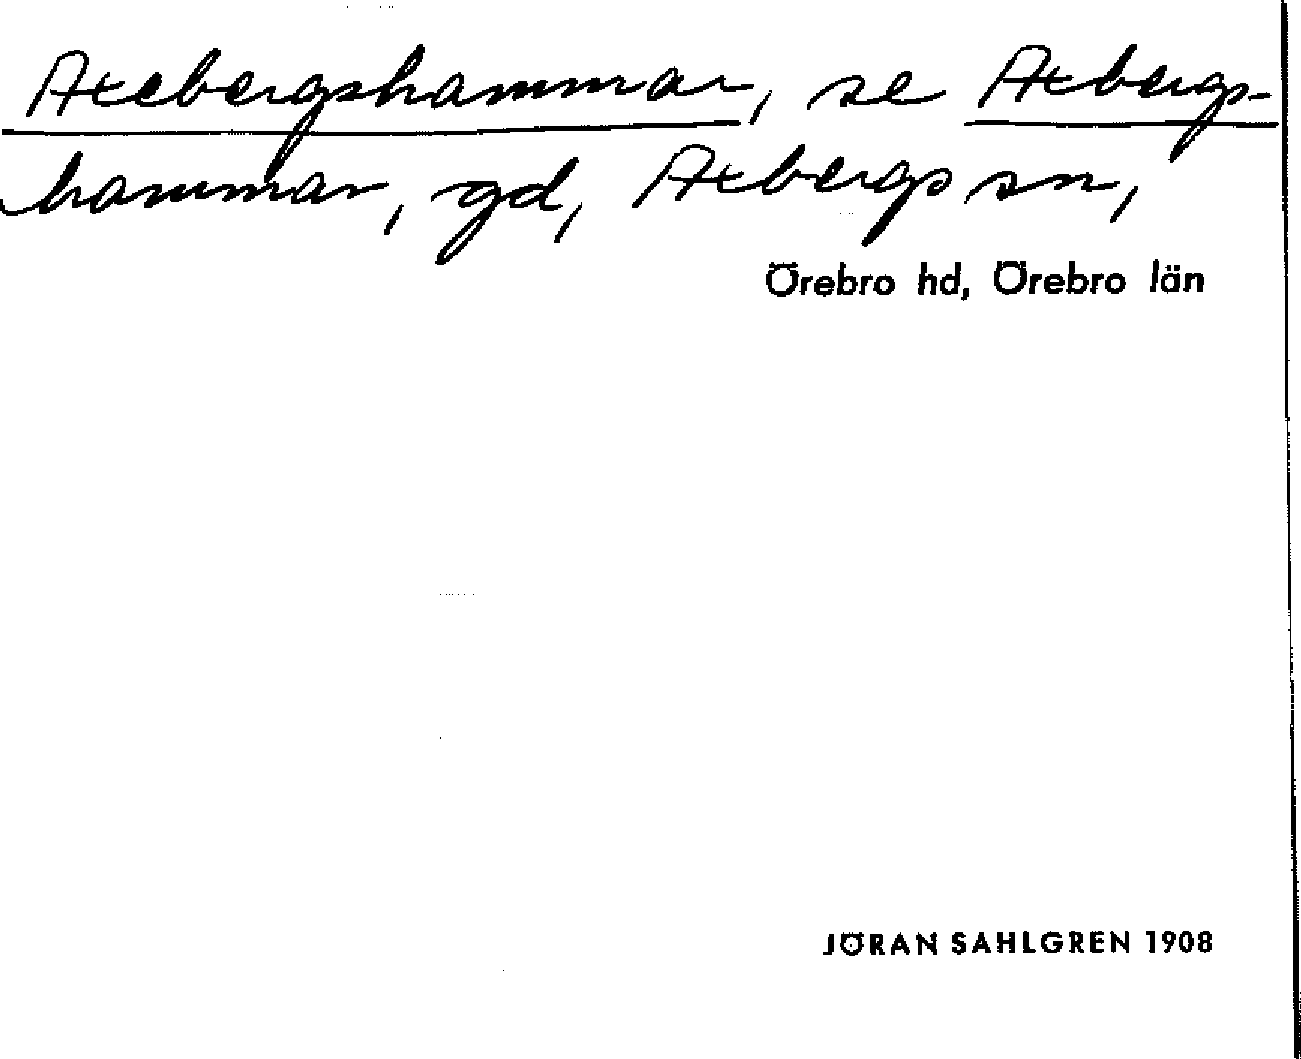 Axebergshammar, se Axbergs-
hammar, gd, Axbergs sn,
Örebro hd, Örebro län
JÖRAN SAHLGREN 1908